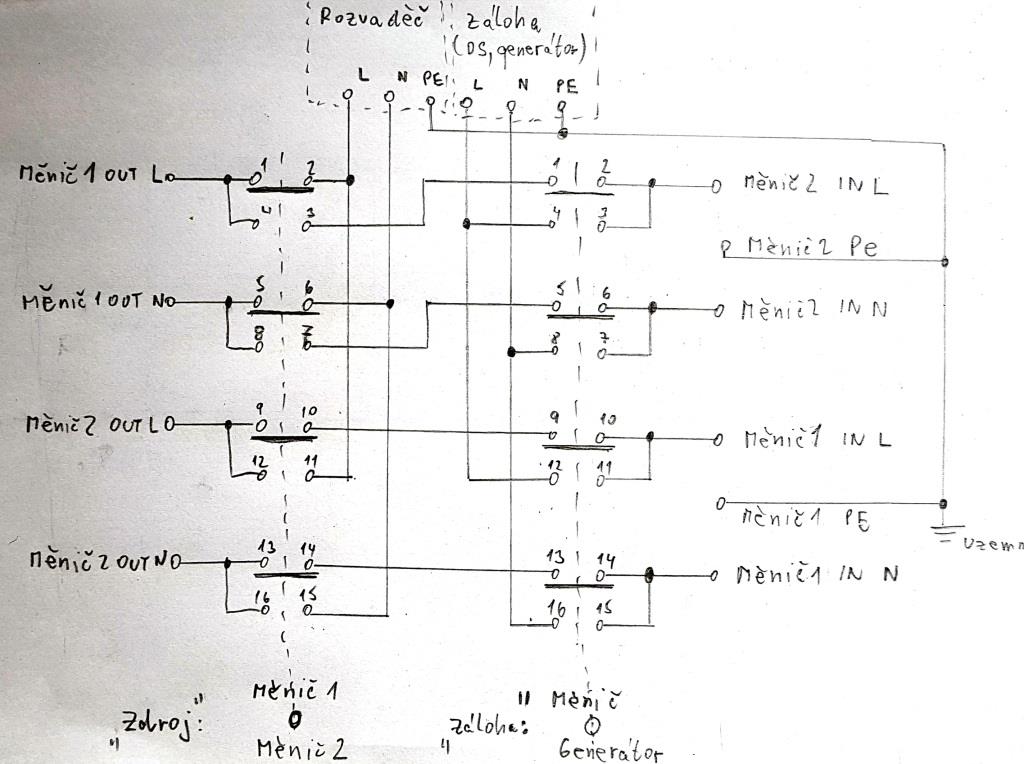 Rozvaděč
záloha
(DS, generátor)
L N PE L N PE
1 2
Měnič 1 OUT L
4 3
1 2
4 3
Měnič 2 IN L
Měnič 2 Pe
5 6
Měnič 1 OUT N
8 7
5 6
8 7
Měnič 2 IN N
9 10
Měnič 2 OUT L
12 11
9 10
12 11
Měnič 1 IN L
Měnič 1 PE
13 14
Měnič 2 OUT N
16 15
13 14
16 15
Měnič 1 IN N
uzem
Měnič 1
"Zdroj:"
Měnič 2
Měnič
"Záloha:"
Generátor